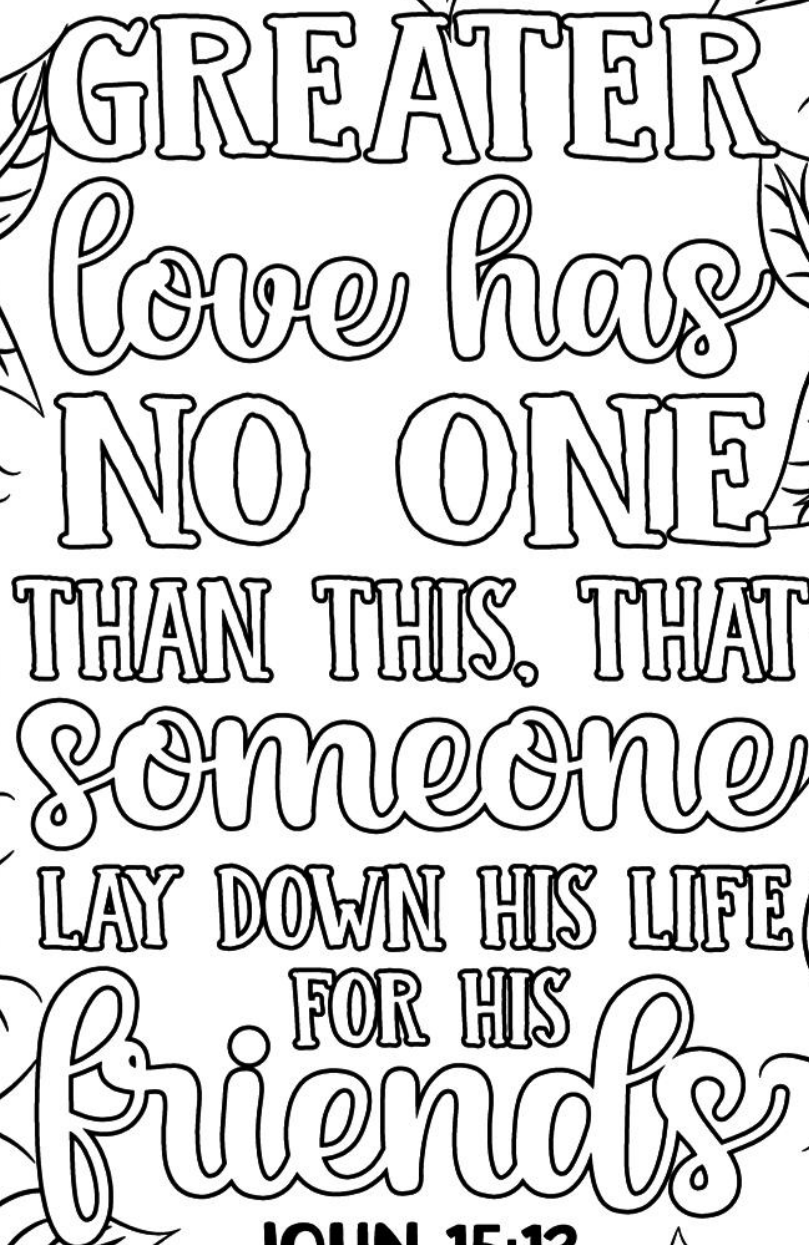 GREATER
love has
NO ONE
THAN THIS, THAT
someone
LAY DOWN HIS LIFE
FOR HIS
friends
JOHN